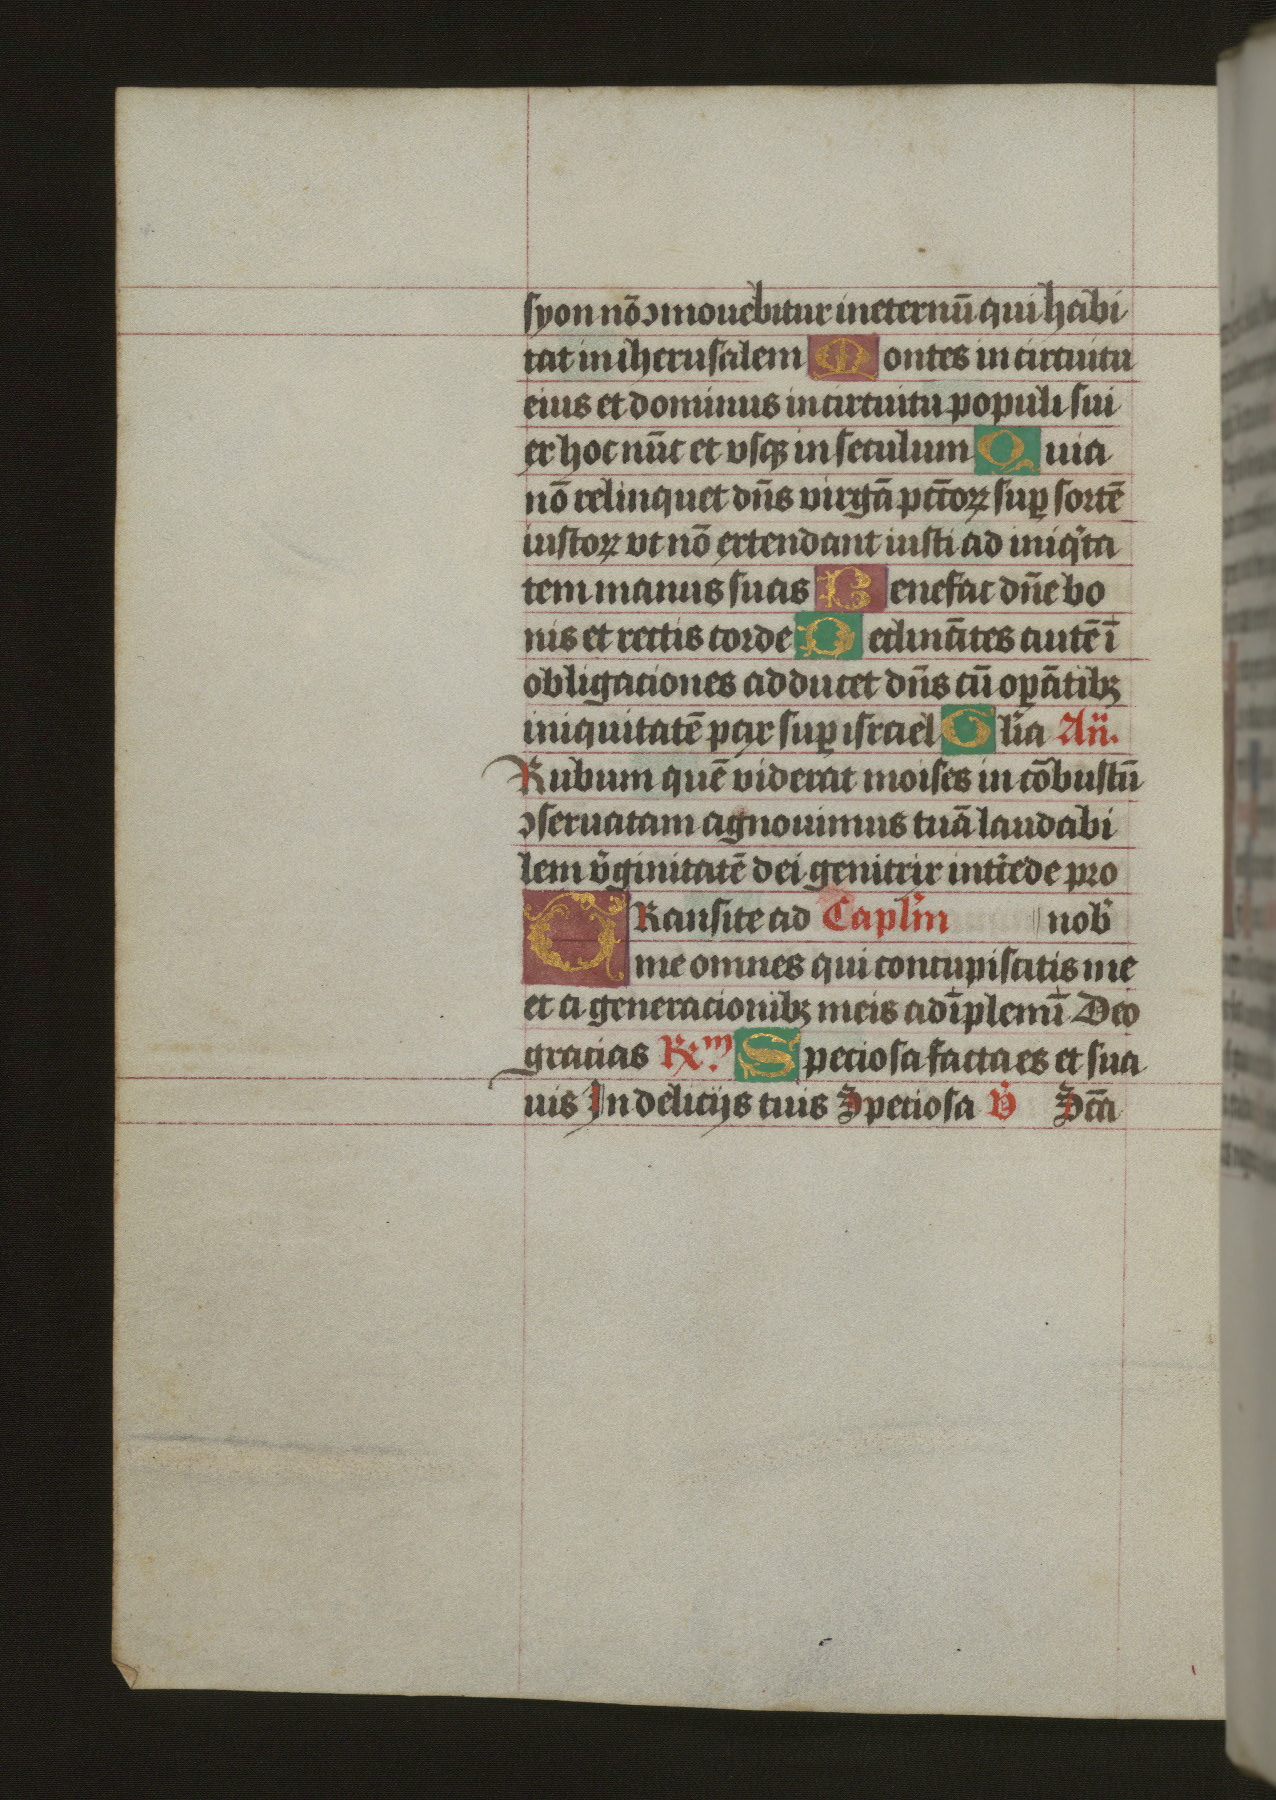 syon nō ↄmouebitur in eternū qui habi
tat in iherusalem Montes in circuitu
eius et dominus in circuitu populi sui
ex hoc nūc et vsqꝫ in seculum Quia
nō relinquet dn̄s virgā pctōꝝ suꝑ sortē
iustoꝝ vt nō extendant iusti ad iniqͥta
tem manus suas Benefac dn̄e bo
nis et rectis corde Declināntes autē ī
obligaciones adducet dn̄s cū oꝑātibꝫ
iniquitatē pax suꝑ israel Glīa An̄.
Rubum quē viderat moises in cōbustū
ↄseruatam agnouimus tuā laudabi
lem vͥginitatē dei genitrix intͨede pro
TRansite ad Caplͥm nobͥ
me omnes qui concupiscitis me
et a generacionibꝫ meis adīplemī Deo
gracias ℞m Speciosa facta es et sua
uis In delicijs tuis Speciosa ℣ Scā